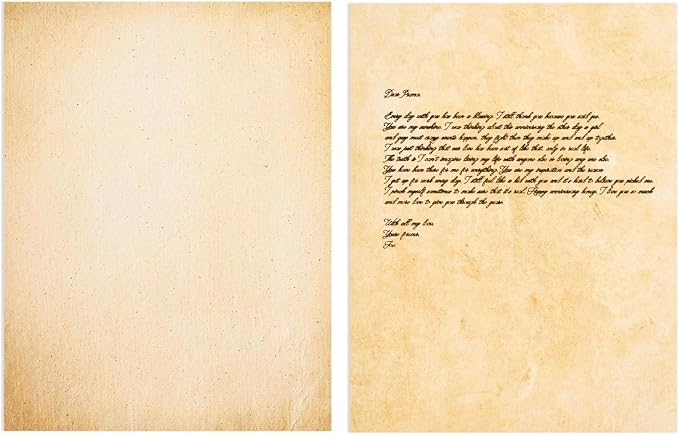 Every day with you has been a blessing. I still thank you because you
You are my sunshine. I was thinking about the anniversary the other day a girl
and guy meet crazy events happen, they fight then they make up and end up together.
I was just thinking that our love has been sort of like that, only in real life.
The truth is I can't imagine living my life with anyone else or loving any one else.
You have been there for me for everything. You are my inspiration and the reason
I get up for work every day. I still feel like a kid with you and it's hard to believe you picked me.
I pinch myself sometimes to make sure that it's real. Happy anniversary honey, I love you so much
and more love to give you through the years.
With all my love,
Yours forever,